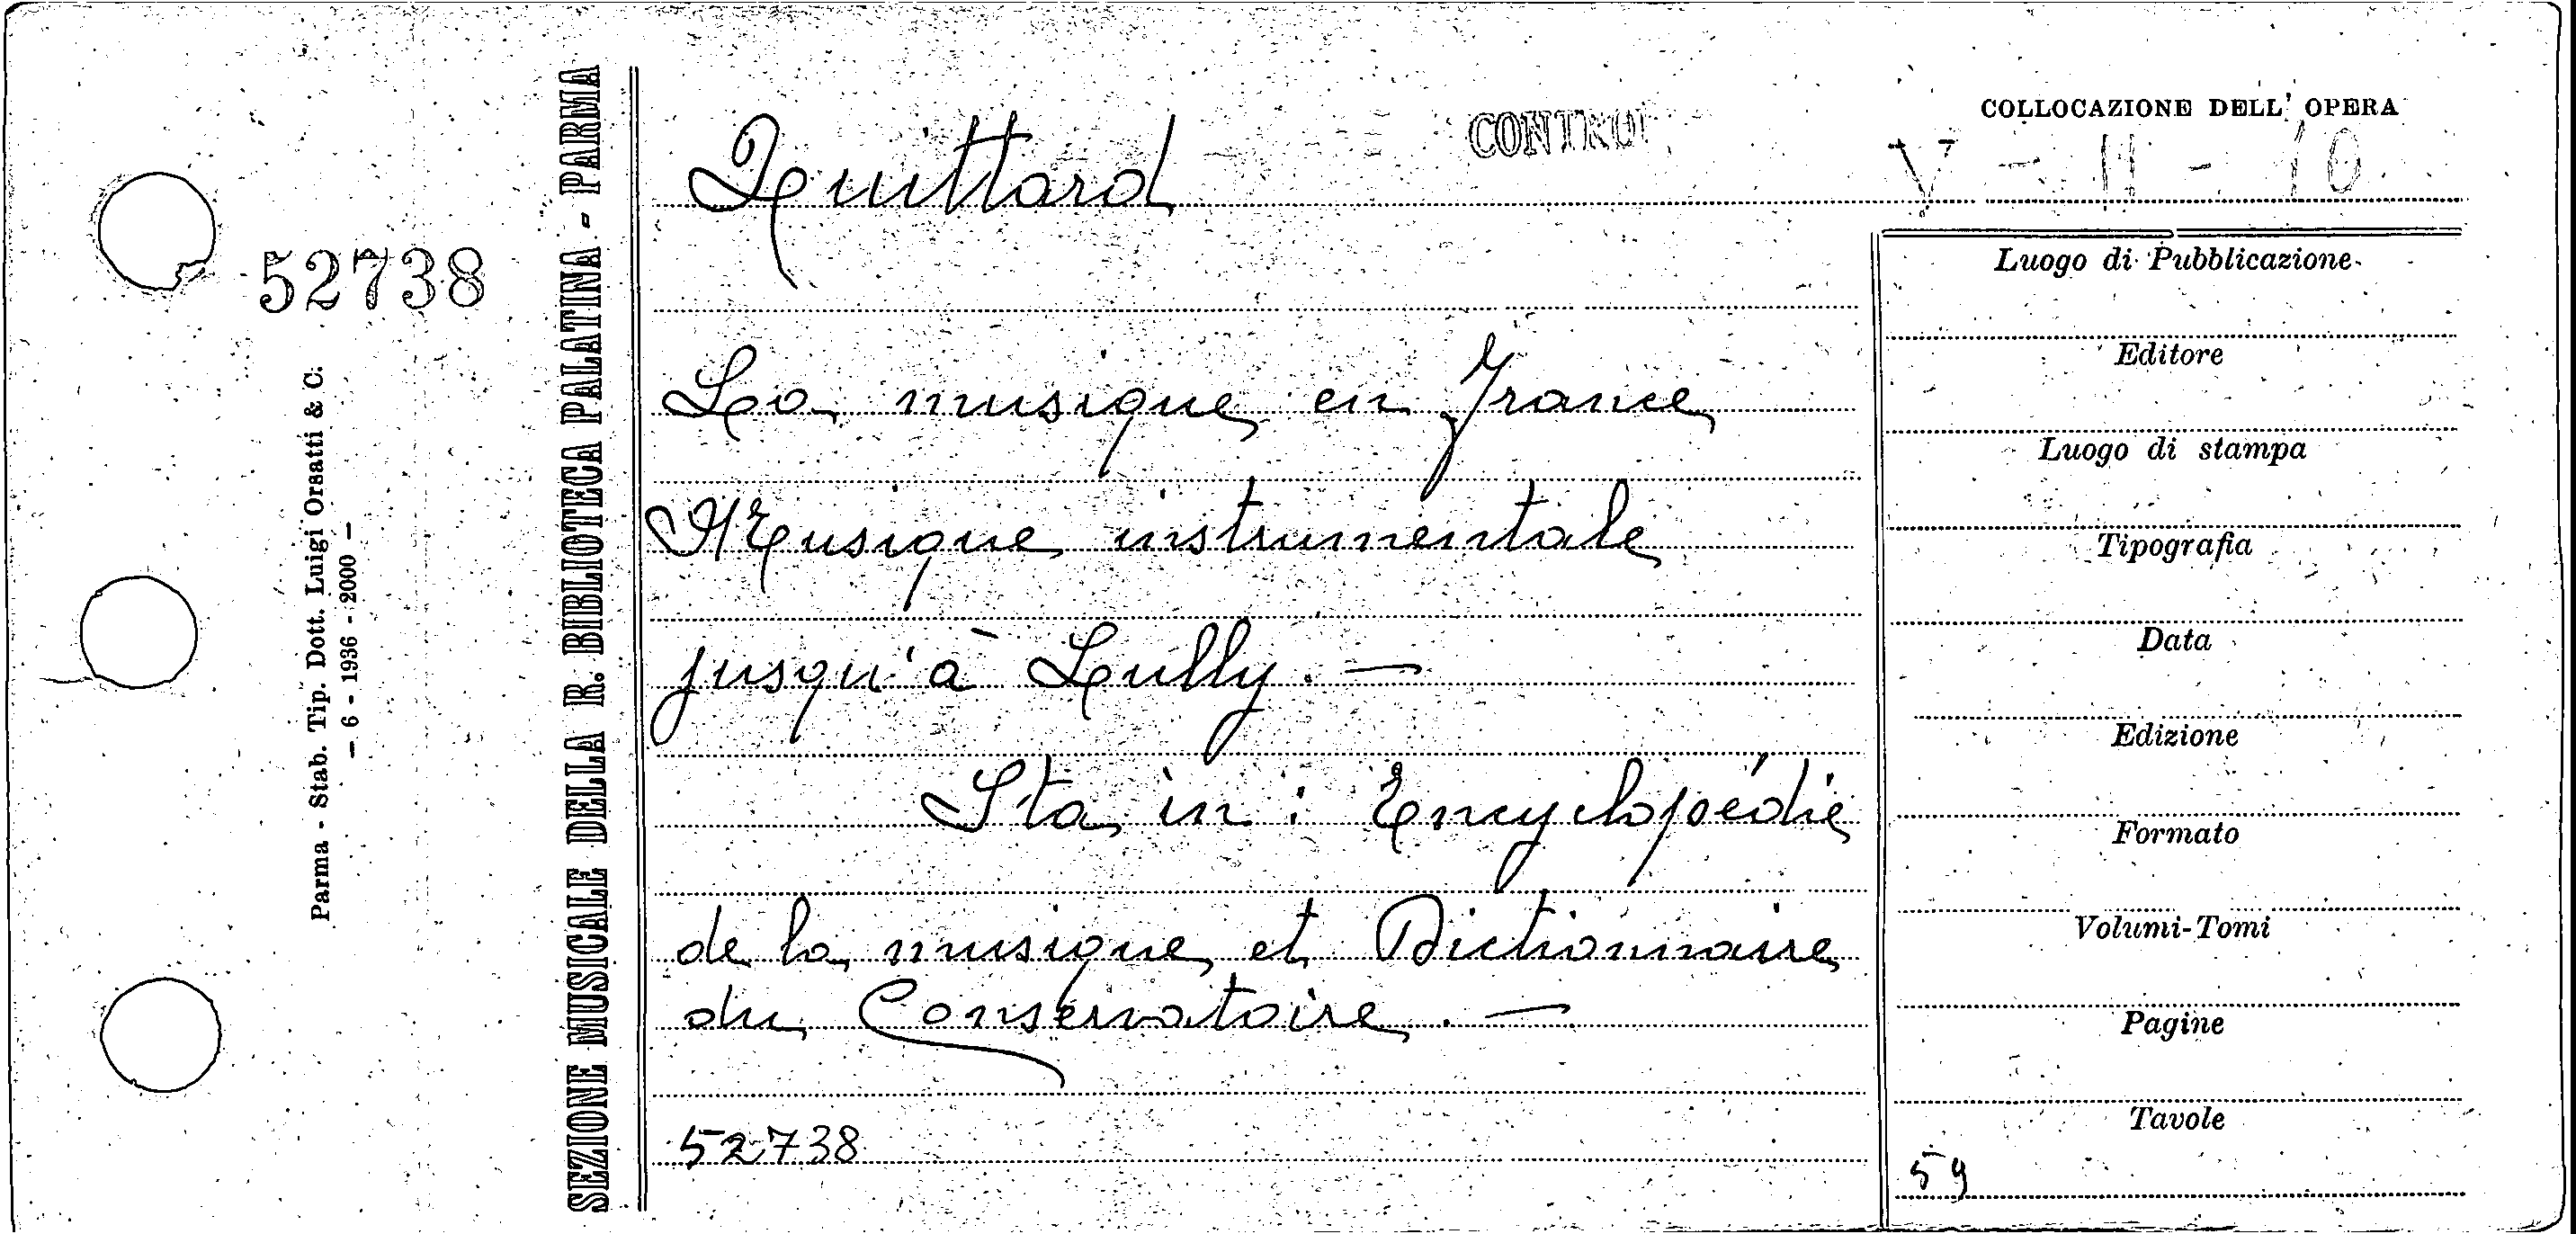 52738
Parma - Stab. Tip. Dott. Luigi Orsatti & C.
— 6 - 1936 - 2000 —
SEZIONE MUSICALE DELLA R. BIBLIOTECA PALATINA - PARMA
Quittard
La musique en France
Musique instrumentale
jusqu'à Lully. —
Sta in: Encyclopédie
de la musique et Dictionnaire
du Conservatoire. —
52738
COLLOCAZIONE DELL' OPERA
V - H - 10
Luogo di Pubblicazione
Editore
Luogo di stampa
Tipografia
Data
Edizione
Formato
Volumi-Tomi
Pagine
Tavole
59